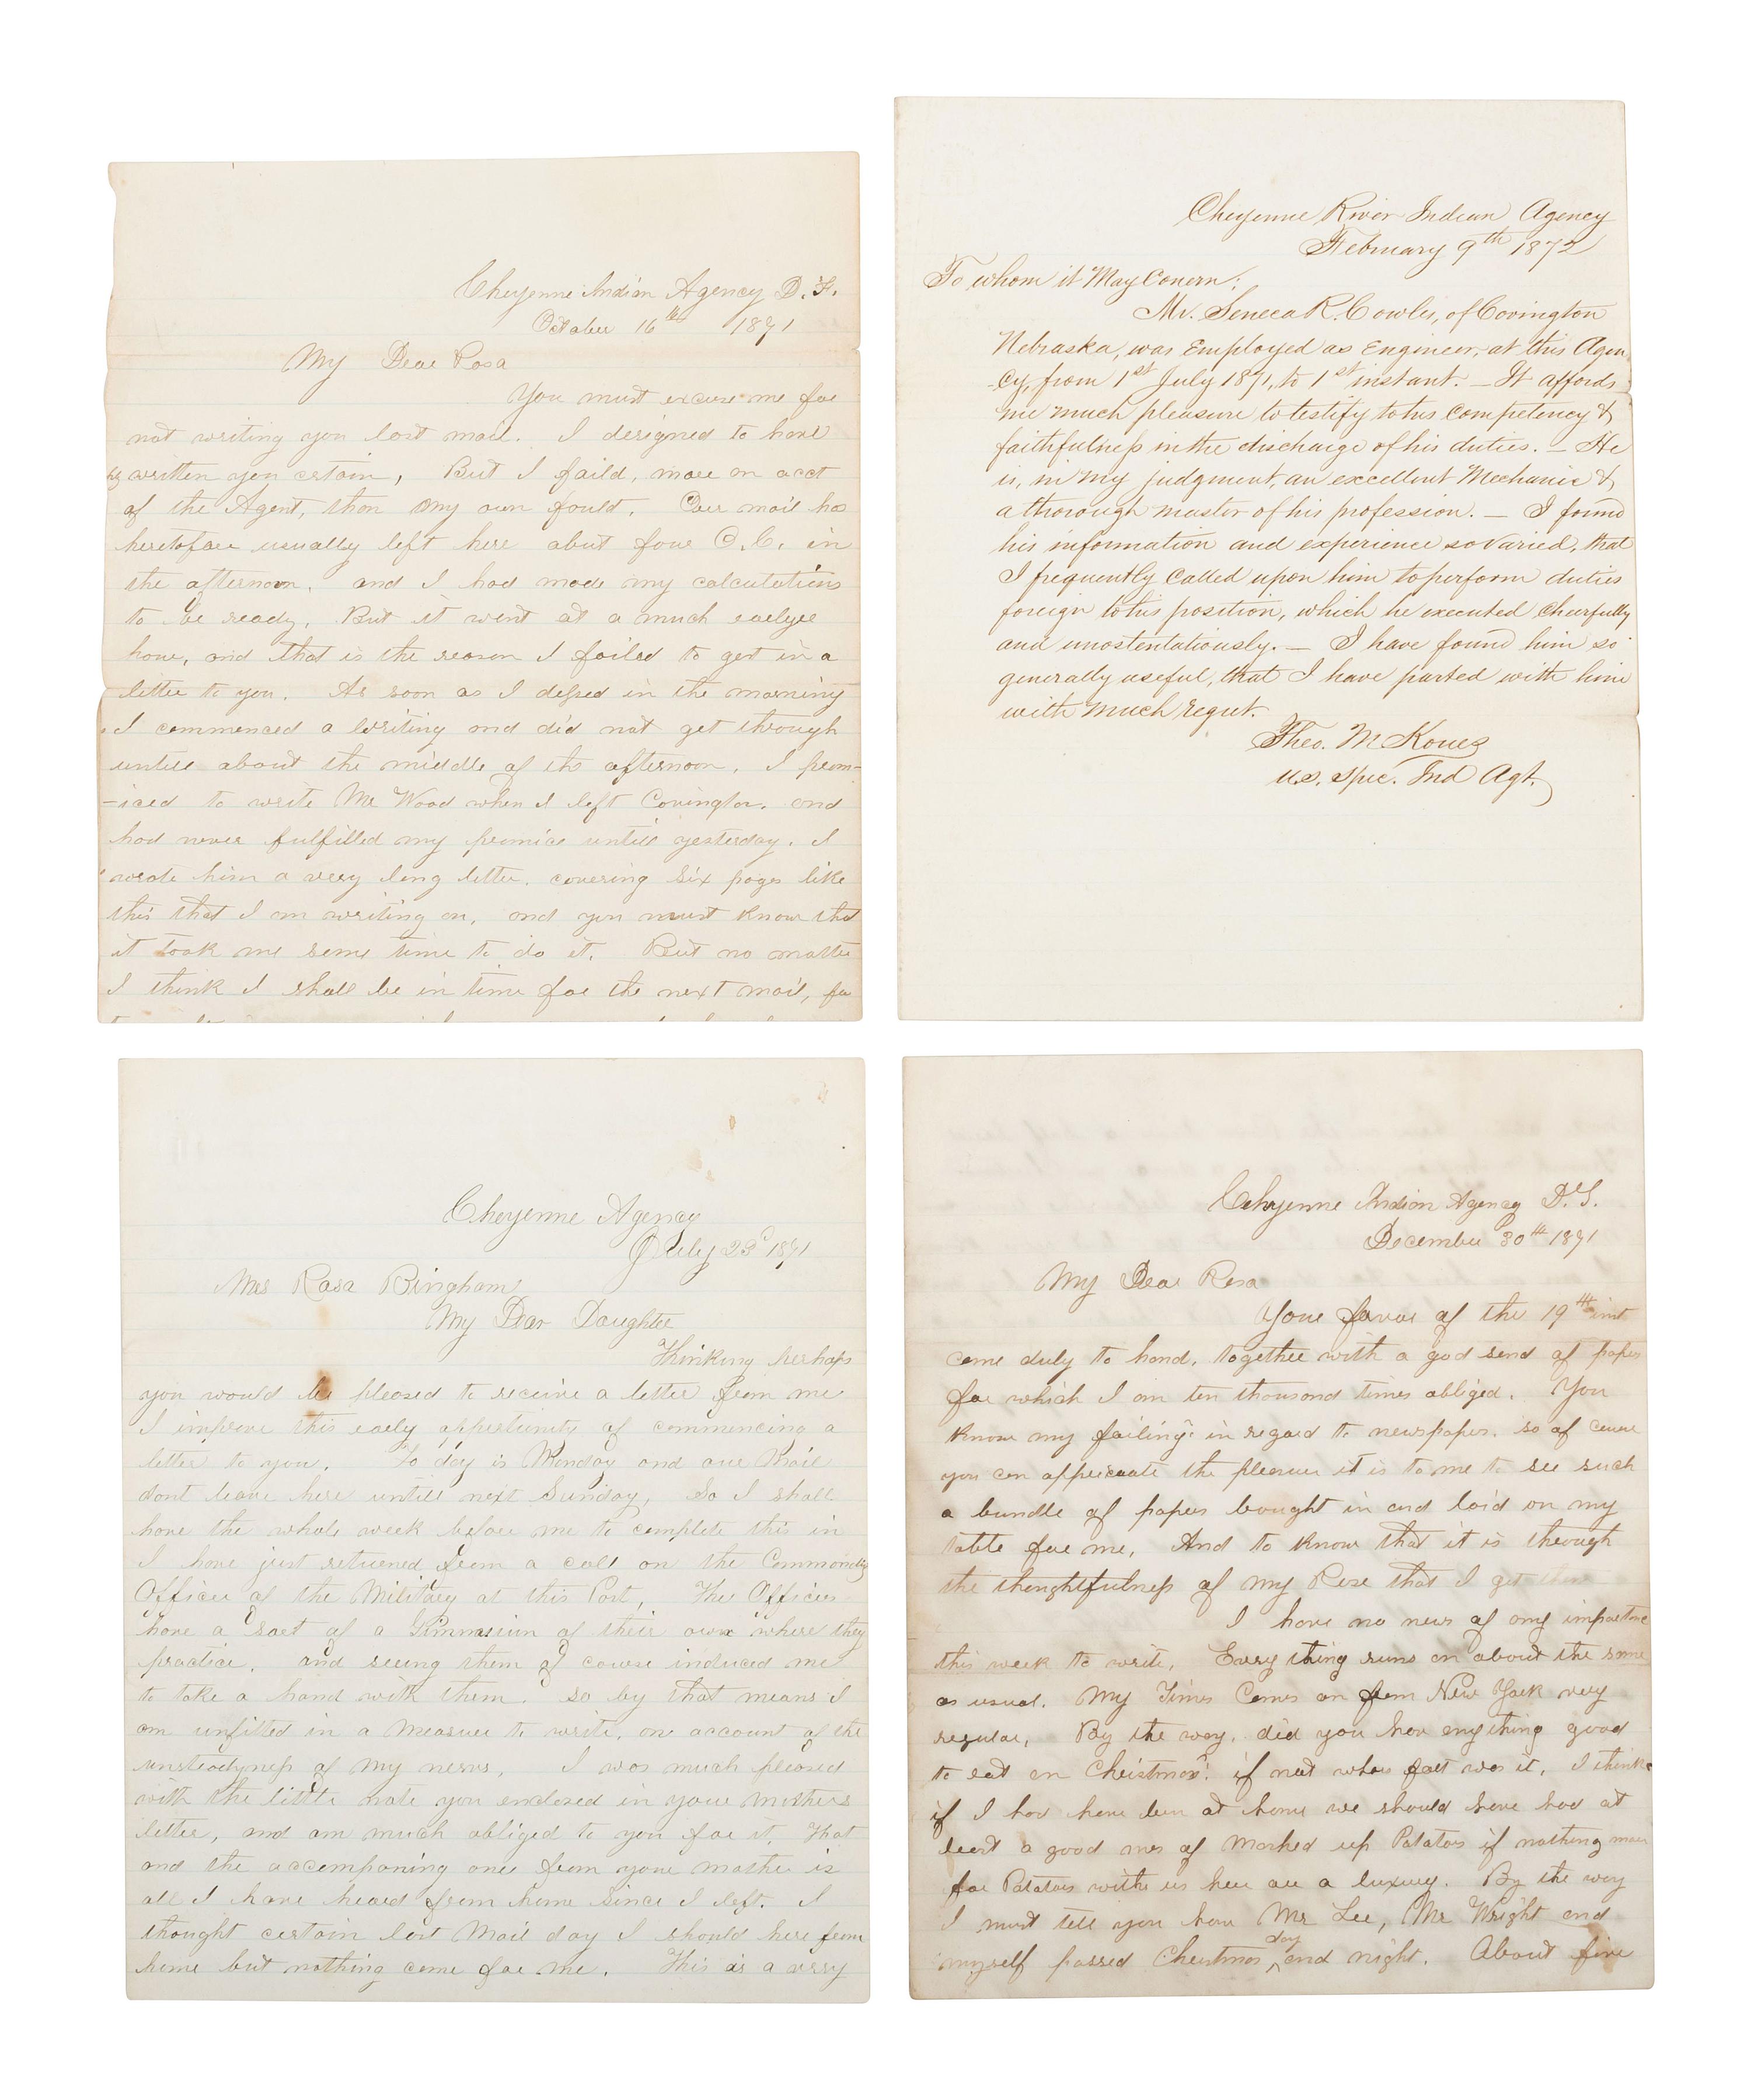 Cheyenne Indian Agency D. T.
October 16th 1871
My Dear Rosa
You must excuse me for
not writing you last mail. I designed to have
written you certain, But I faild, more on acct
of the Agent, than my own fault. Our mail has
heretofore usually left here about four O.C. in
the afternoon. and I had made my calculations
to be ready. But it went at a much earlyer
hour, and that is the reason I failed to get in a
letter to you. As soon as I dressed in the morning
I commenced a writing and did not get through
untill about the middle of the afternoon. I prom-
-iced to write Mr Wood when I left Covington. and
had never fulfilled my promice untill yesterday. I
wrote him a very long letter. covering six pages like
this that I am writing on. and you must know that
it took me some time to do it. But no matter
I think I shall be in time for the next mail, for
Cheyenne River Indian Agency
February 9th 1872
To whom it May Conern:
Mr. Seneca R. Cowles, of Covington
Nebraska, was Employed as Engineer, at this Agen
-cy, from 1st July 1871, to 1st instant. — It affords
me much pleasure to testify to his competency &
faithfulness in the discharge of his duties. — He
is, in my judgment, an excellent Mechanic &
a thorough master of his profession. — I found
his information and experience so varied, that
I frequently called upon him to perform duties
foreign to his position, which he executed cheerfully
and unostentatiously. — I have found him so
generally useful, that I have parted with him
with much regret.
Theo. M Koues
U.S. Spec. Ind Agt.
Cheyenne Agency
July 23d 1871
Mrs Rosa Bingham
My Dear Daughter
Thinking perhaps
you would be pleased to receive a letter from me
I improve this early oppertunity of commencing a
letter to you. To day is Monday and our Mail
dont leave here untill next Sunday, So I shall
have the whole week before me to complete this in
I have just returned from a call on the Commanding
Officer of the Military at this Post, The Officers
have a sort of a Gimnasium of their own where they
practice. and seeing them of course induced me
to take a hand with them. so by that means I
am unfitted in a measure to write, on account of the
unsteadyness of my nerves. I was much pleased
with the little note you enclosed in your mothers
letter, and am much obliged to you for it. That
and the accompaning one from your mother is
all I have heard from home since I left. I
thought certain last Mail day I should here from
home but nothing come for me. This is a very
Cehyenne Indian Agency D. T.
December 30th 1871
My Dear Rosa
Your favor of the 19th inst
came duly to hand, together with a god send of papers
for which I am ten thousand times obliged. You
know my failing in regard to newspapers. so of course
you can appreciate the pleasure it is to me to see such
a bundle of papers bought in and laid on my
table for me. And to know that it is through
the thoughtfulness of my Rose that I get them
I have no news of any importance
this week to write. Every thing runs on about the same
as usual. My Times Comes on from New York very
regular, By the way, did you have any thing good
to eat on Christmas? if not whose falt was it. I think
if I had have been at home we should have had at
least a good mes of Mashed up Patatos if nothing more
for Patatos with us here are a luxury. By the way
I must tell you how Mr Lee, Mr Wright and
myself passed Christmas day and night. About five